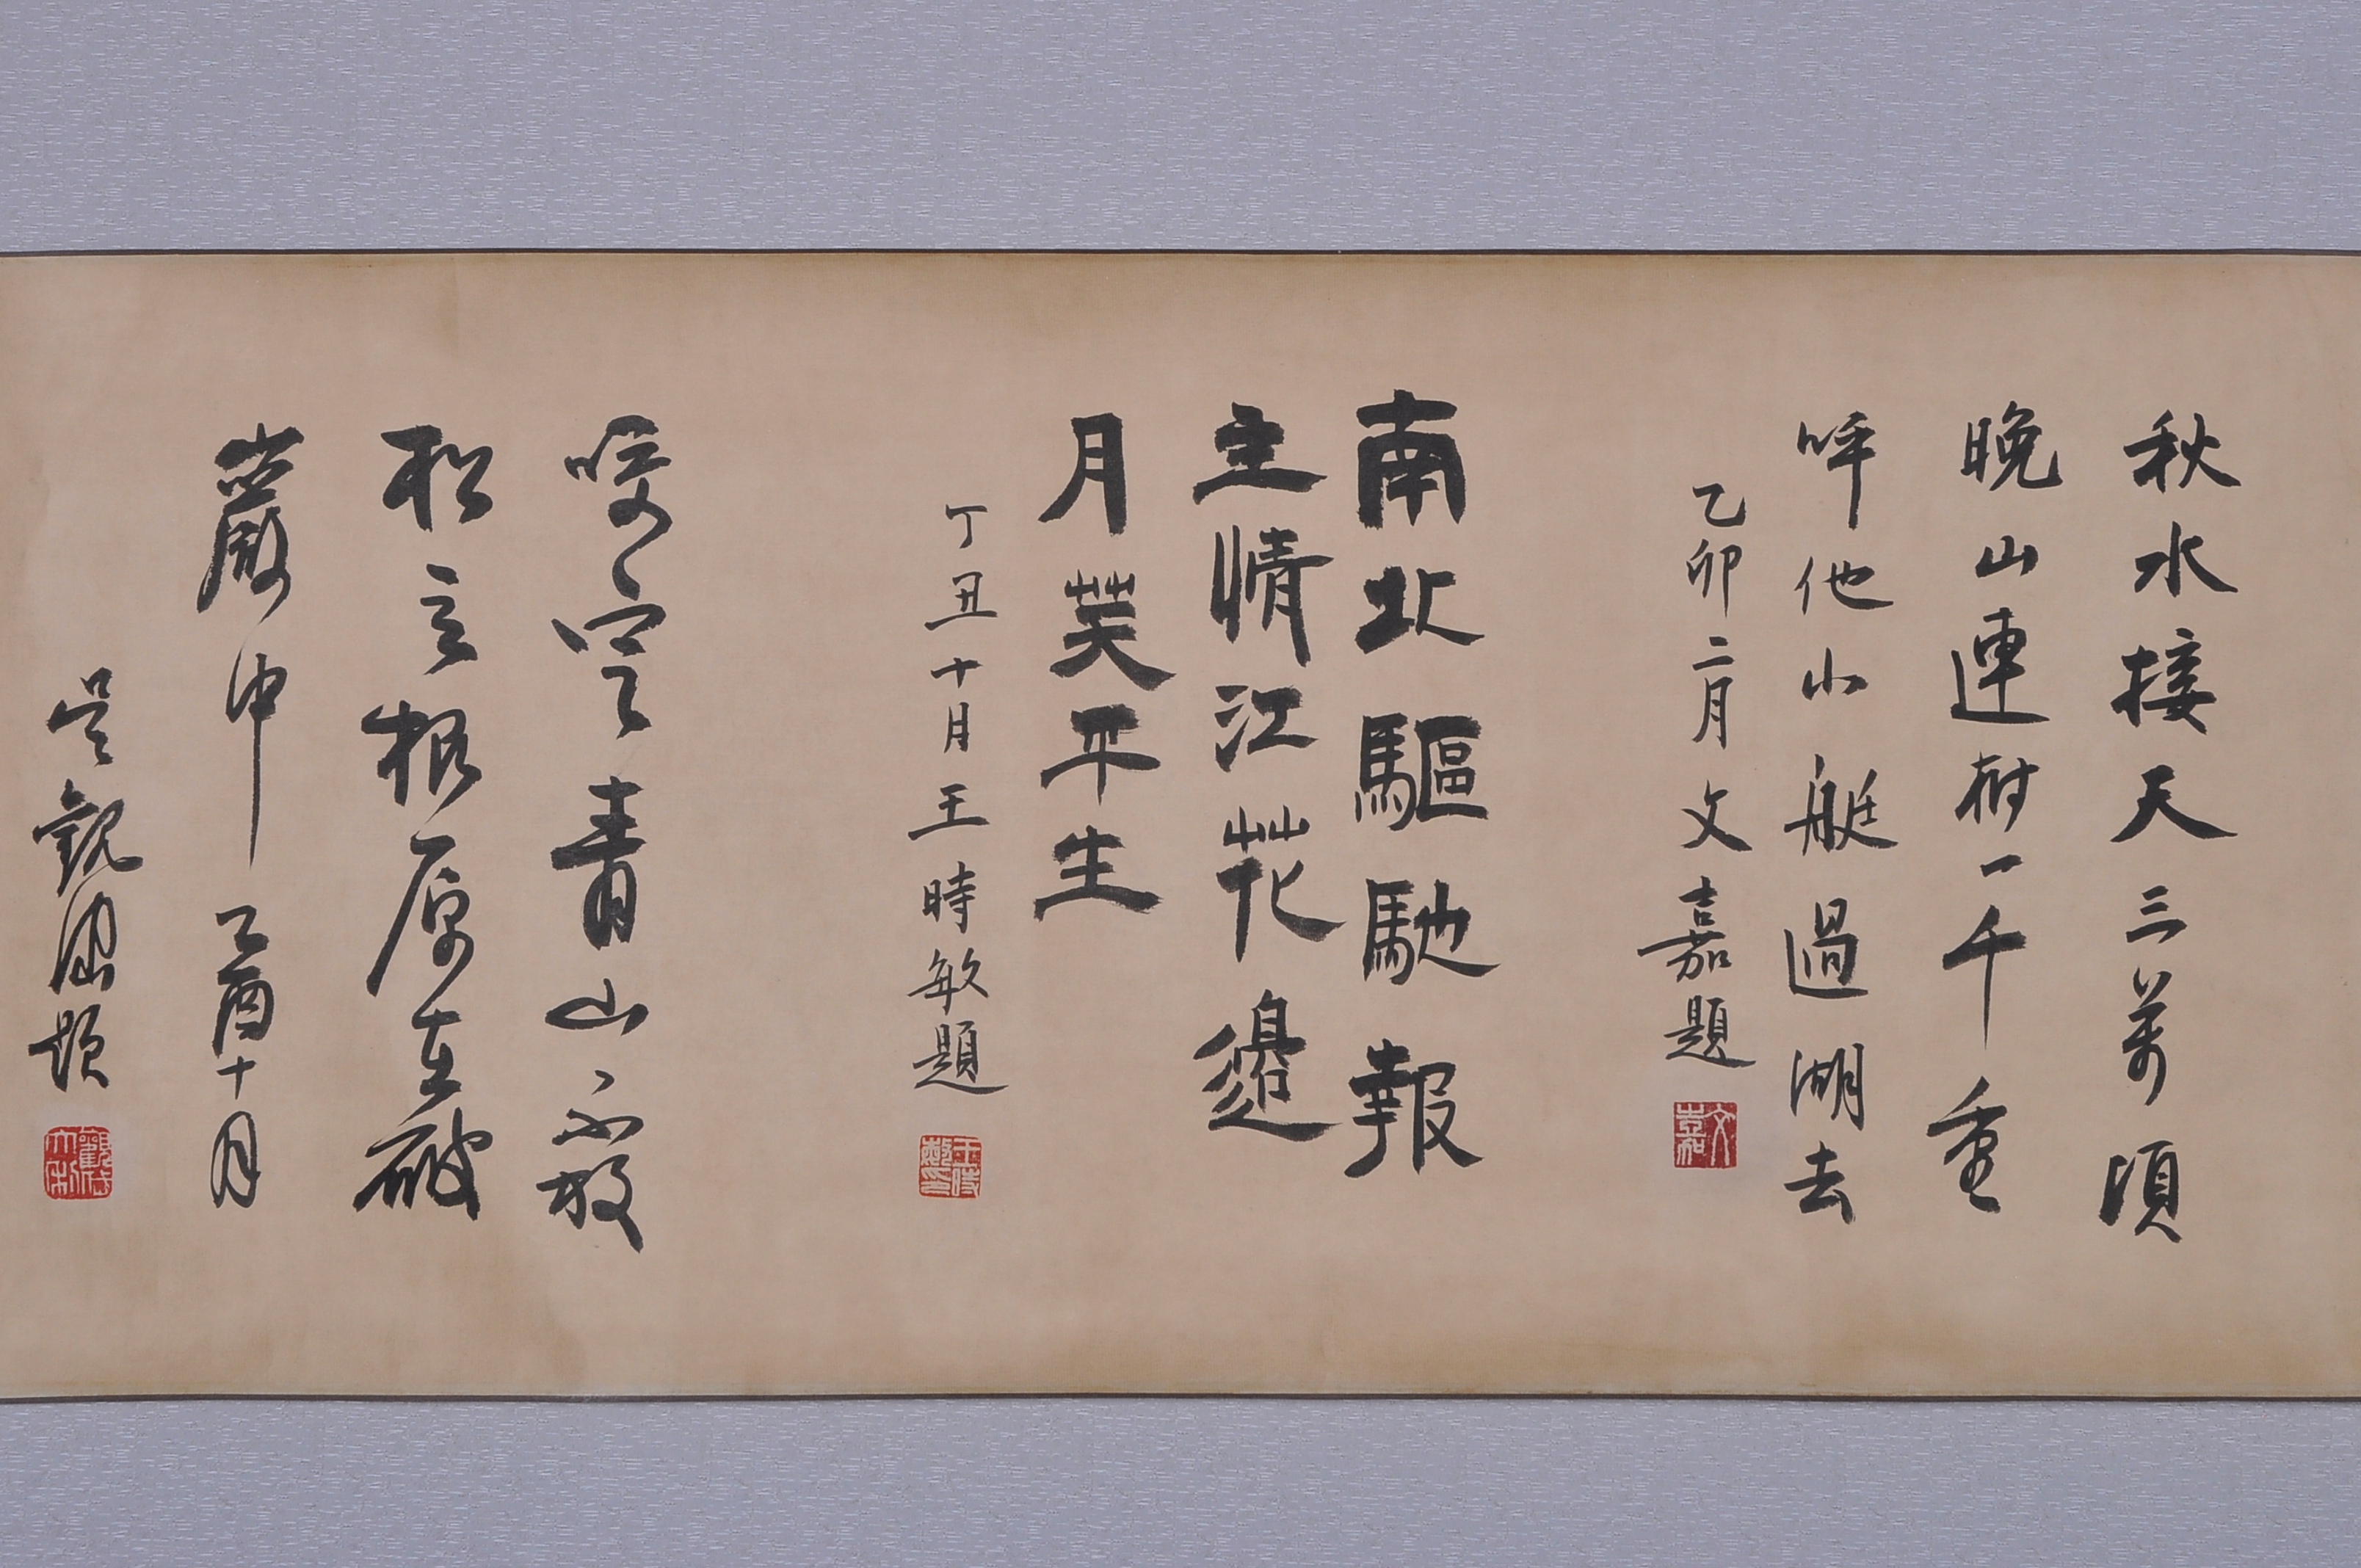 秋水接天三萬頃
晚山連樹一千重
呼他小艇過湖去
乙卯二月文嘉題
文嘉
南北驅馳報
主情江花邊
月笑平生
丁丑十月王時敏題
王時敏印
咬定青山不放
松立根原在破
巖中乙酉十月
吳觀岱題